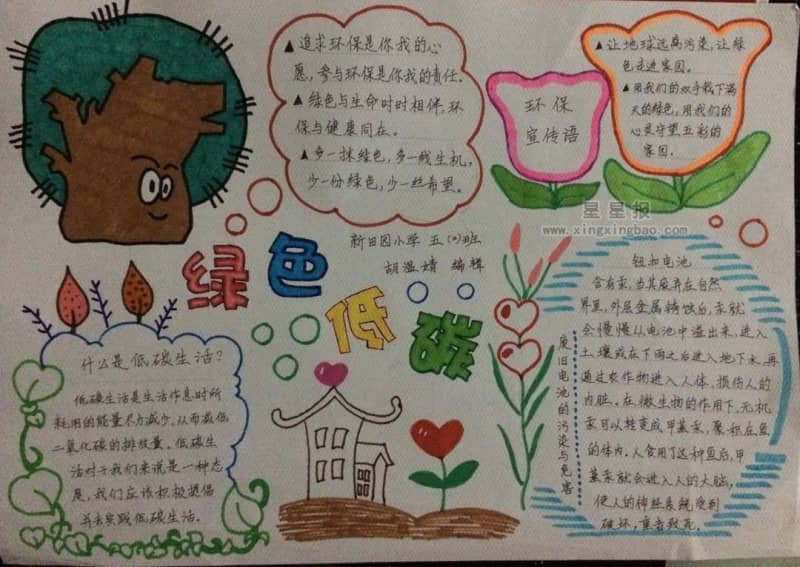 ▲追求环保是你我的心
愿，参与环保是你我的责任。
▲绿色与生命时时相伴，环
保与健康同在。
▲多一抹绿色，多一线生机，
少一份绿色，少一丝希望。
环保
宣传语
▲让地球远离污染，让绿
色走进家园。
▲用我们的双手载下满
天的绿色，用我们的
心灵守望五彩的
家园。
星星报
www.xingxingbao.com
新田园小学 五(2)班
胡滥婧 编辑
绿色
低碳
什么是低碳生活？
低碳生活是生活作息时所
耗用的能量尽力减少，从而减低
二氧化碳的排放量。低碳生
活对于我们来说是一种态
度，我们应该积极提倡
并去实践低碳生活。
废旧电池的污染与危害
钮扣电池
含有汞，当其废弃在自然
界里，外层金属锈蚀后，汞就
会慢慢从电池中溢出来，进入
土壤或在下雨之后进入地下水，再
通过农作物进入人体，损伤人的
内脏。在微生物的作用下，无机
汞可以转变成甲基汞，聚积在鱼
的体内。人食用了这种鱼后，甲
基汞就会进入人的大脑，
使人的神经系统受到
破坏，重者致死。